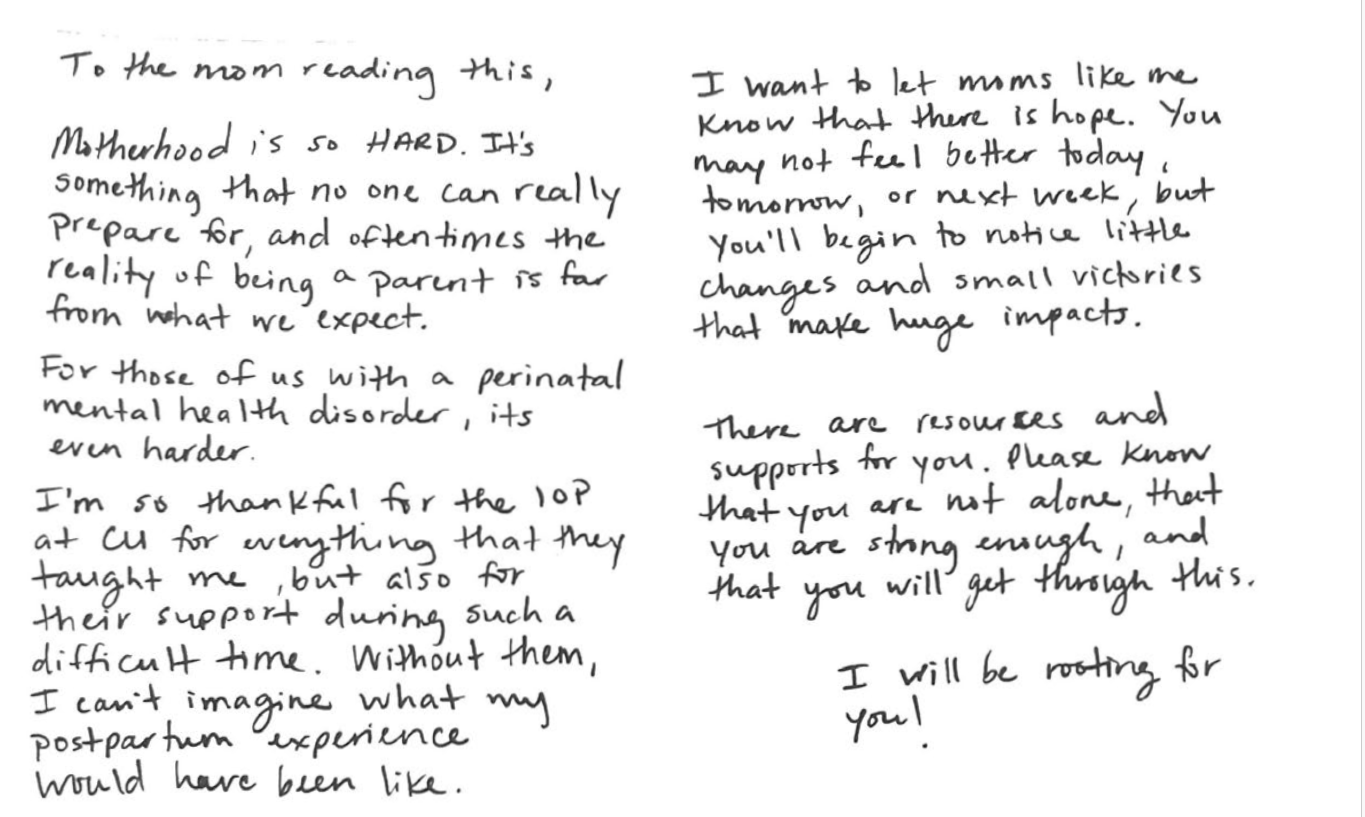 To the mom reading this,
Motherhood is so HARD. It's
something that no one can really
prepare for, and oftentimes the
reality of being a parent is far
from what we expect.
For those of us with a perinatal
mental health disorder, its
even harder.
I'm so thankful for the IOP
at CU for everything that they
taught me, but also for
their support during such a
difficult time. Without them,
I can't imagine what my
postpartum experience
would have been like.
I want to let moms like me
know that there is hope. You
may not feel better today,
tomorrow, or next week, but
you'll begin to notice little
changes and small victories
that make huge impacts.
There are resources and
supports for you. Please know
that you are not alone, that
you are strong enough, and
that you will get through this.
I will be rooting for
you!